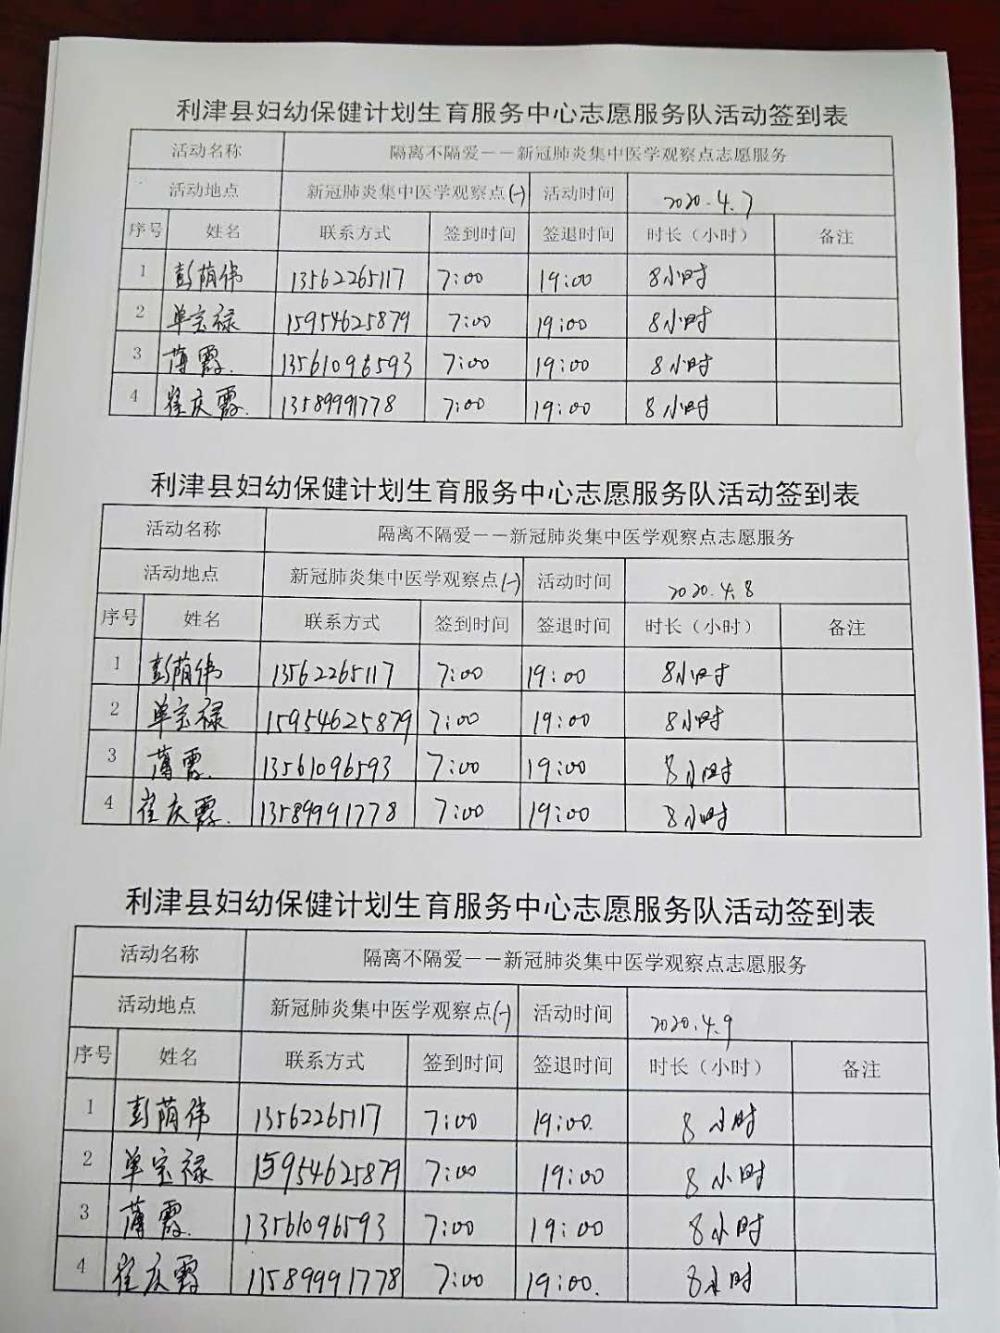 利津县妇幼保健计划生育服务中心志愿服务队活动签到表
活动名称 隔离不隔爱——新冠肺炎集中医学观察点志愿服务
活动地点 新冠肺炎集中医学观察点(一) 活动时间 2020.4.7
序号 姓名 联系方式 签到时间 签退时间 时长（小时） 备注
1 彭荫伟 13562265117 7:00 19:00 8小时
2 单宝禄 15954625879 7:00 19:00 8小时
3 薄霞. 13561096593 7:00 19:00 8小时
4 崔庆霞. 13589991778 7:00 19:00 8小时
利津县妇幼保健计划生育服务中心志愿服务队活动签到表
活动名称 隔离不隔爱——新冠肺炎集中医学观察点志愿服务
活动地点 新冠肺炎集中医学观察点(一) 活动时间 2020.4.8
序号 姓名 联系方式 签到时间 签退时间 时长（小时） 备注
1 彭荫伟 13562265117 7:00 19:00 8小时
2 单宝禄 15954625879 7:00 19:00 8小时
3 薄霞. 13561096593 7:00 19:00 8小时
4 崔庆霞. 13589991778 7:00 19:00 8小时
利津县妇幼保健计划生育服务中心志愿服务队活动签到表
活动名称 隔离不隔爱——新冠肺炎集中医学观察点志愿服务
活动地点 新冠肺炎集中医学观察点(一) 活动时间 2020.4.9
序号 姓名 联系方式 签到时间 签退时间 时长（小时） 备注
1 彭荫伟 13562265117 7:00 19:00. 8小时
2 单宝禄 15954625879 7:00 19:00 8小时
3 薄霞. 13561096593 7:00 19:00 8小时
4 崔庆霞 13589991778 7:00 19:00. 8小时